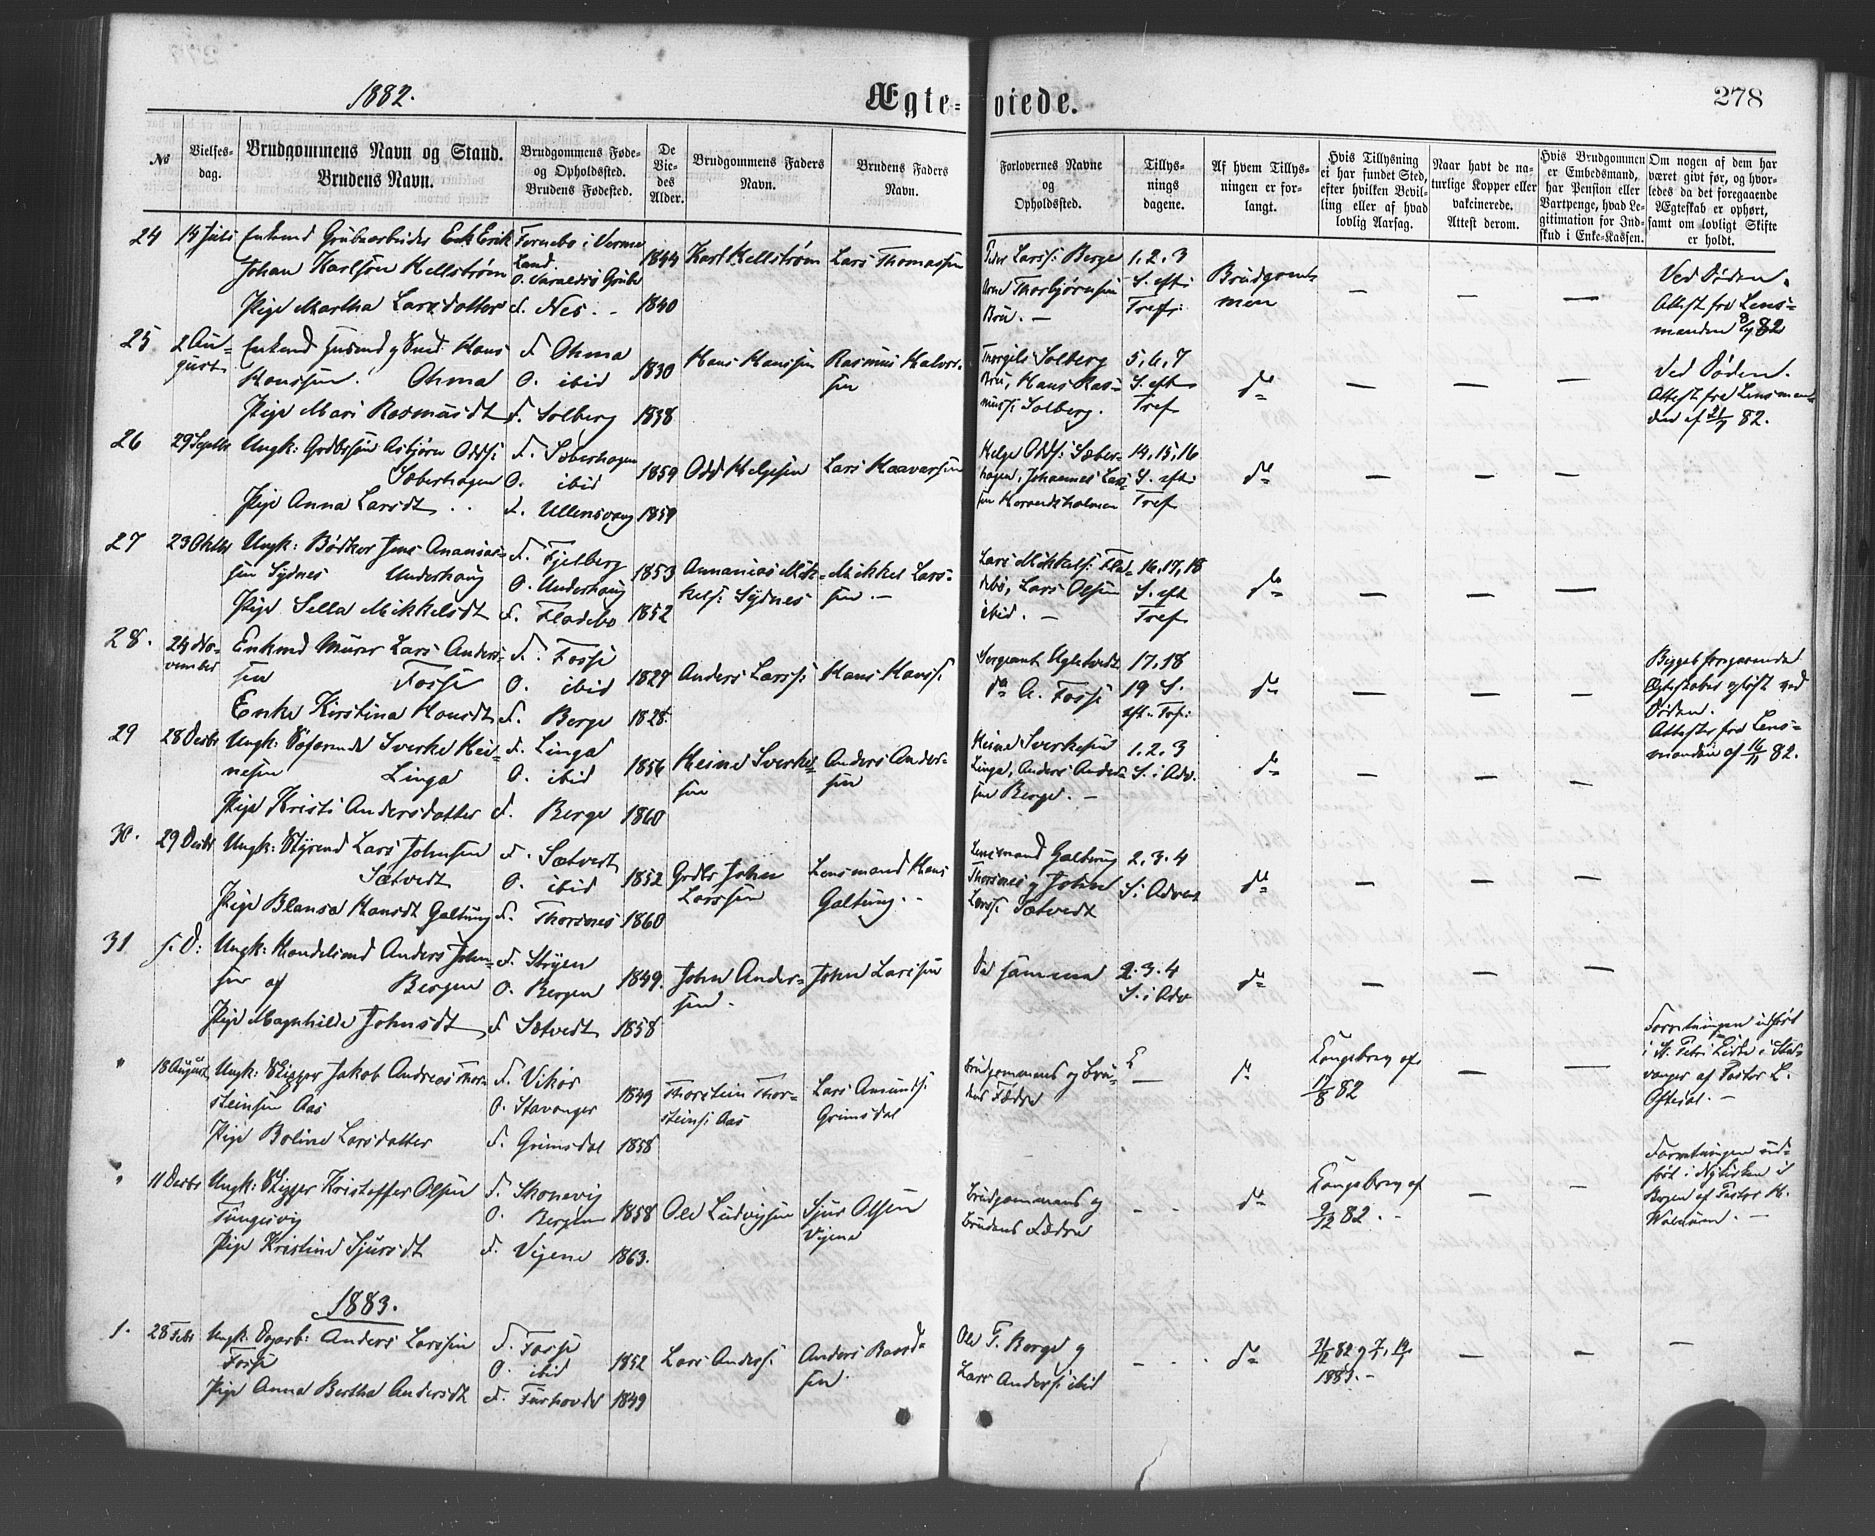 1882.
Ægte-
viede.
278
No
Vielses-
dag.
Brudgommens Navn og Stand.
Brudens Navn.
Brudgommens Føde-
og Opholdsted.
Brudens Fødested.
De
Vie-
des
Alder.
Brudgommens Faders
Navn.
Brudens Faders
Navn.
Forlovernes Navne
og
Opholdsted.
Tillys-
nings
dagene.
Af hvem Tillys-
ningen er for-
langt.
Hvis Tillysning
ei har fundet Sted,
efter hvilken Bevil-
ling eller af hvad
lovlig Aarsag.
Naar havt de na-
turlige Kopper eller
vakcinerede.
Attest derom.
Hvis Brudgommen
er Embedsmand,
har Pension eller
Vartpenge, hvad Le-
gitimation for Ind-
skud i Enke-Kassen.
Om nogen af dem har
været givt før, og hvor-
ledes da det foregaaende
Ægteskab er ophørt,
samt om lovligt Skifte
er holdt.
24
14 Juli
Enkemd Grubearbeider Erik
Johan Karlsøn Kellstrøm
Pige Martha Larsdatter
Fernebo i Verme
Land
O. Varaldsø Grube
f. Nes.
1844
1840
Karl Kellstrøm
Lars Thomassen
Peder Larss: Berge
Arne Thorbjørnsen
Bru. —
1. 2. 3
S. eft:
Tref:
Brudgom-
men
—
—
—
Ved Døden.
Attest fra Lens-
manden 8/7 82
25
2 Au-
gust
Enkemd Husmd y Smed Hans
Hanssen. Ohma
Pige Mari Rasmusdt
F. Ohma
O. ibid
F. Solberg
1830
1838
Hans Hanssen
Rasmus Halvor-
sen
Thorgils Solberg
Bru, Hans Ras-
muss: Solberg.
5, 6, 7
S. eft
Tref
do
—
—
—
Ved Døden.
Attest fra Lensman-
den af 21/7 82.
26
29 Septbr
Ungk: Grdbssøn Asbjørn Odds:
Sæberhagen
Pige Anna Larsdt
F. Sæberhagen
O. ibid
F. Ullensvang
1859
1859
Odd Helgesen
Lars Haavarsen
Helge Odds: Sæber-
hagen, Johannes Lars-
sen
14, 15, 16
S. eft:
Tref
do
—
—
—
27
23 Oktbr
Ungk: Bødker Jens Ananias-
sen Sydnes Underhaug
Pige Sella Mikkelsdt
F. Fjelberg
O. Underhaug
F. Fladebø
1853
1852
Annanias Mik-
kels: Sydnes
Mikkel Lars-
sen. —
Lars Mikkels: Fla-
debø, Lars Olsen
ibid. —
16, 17, 18
S. eft
Tref
do
—
—
—
28.
24 No-
vember
Enkemd Murer Lars Anders-
sen Fosse
Enke Kirstina Hansdt
F. Fosse
O. ibid
F. Berge
1827
1828
Anders Larss:
Hans Hanss:
Sergeant Ugletvedt
do A. Fosse
17, 18
19 S.
eft. Tref:
do
—
—
—
Begges foregaaende
Ægteskaber opløst ved
Døden.
Attester fra Lens-
manden af 16/11 82.
29
28 Decbr
Ungk: Søfarende Sverke Hei-
nesen Linga
Pige Kristi Andersdatter
F. Linga
O. ibid
F. Berge
1856
1860
Heine Sverke-
sen
Anders Ander-
sen
Heine Sverkesen
Linga, Anders Ander-
sen Berge. —
1. 2. 3
S. i Adv.
do
—
—
—
30.
29 Decbr
Ungk: Styrmd Lars Johnsen
Sætvedt
Pige Blansa Hansdt Galtung
F. Sætvedt
O. ibid
F. Thorsnes
1852
1860
Grdbr John
Larssen
Lensmand Hans
Galtung.
Lensmand Galtung
Thorsnes y John
Larss: Sætvedt
2. 3. 4
S. i Advent
do
—
—
—
31
s. D:
Ungk: Handelsmd Anders John-
sen af Bergen
Pige Magnhilde Johnsdt
F. Stryen
O. Bergen
F. Sætvedt
1849.
1858
John Ander-
sen.
John Larssen
De samme
2. 3. 4
S. i Adv
do
—
—
—
"
18 August
Ungk: Skipper Jakob Andreas Thor-
steinsen Aas
Pige Boline Larsdatter
F. Vikør
O. Stavanger
F. Grimsdal
1849
1858
Thorstein Thor-
steins: Aas
Lars Amunds:
Grimsdal
Brudgommens og Bru-
dens Fædre
—
do
Kongebrev af
17/8 82
—
—
Forretningen udført
i St. Petri Kirke i Sta-
vanger af Pastor L.
Oftedal. —
"
11 Decbr
Ungk: Skipper Kristoffer Olsen
Tungesvig
Pige Kristine Sjursdt
F. Skonevig
O. Bergen
F. Vigene
1858
1863.
Ole Ludvigsen
Sjur Olsen
Vigene
Brudgommens og
Brudens Fædre
—
do
Kongebrev af
9/12 82. —
—
—
Forretningen ud-
ført i Nykirken i
Bergen af Pastor H.
1883.
1.
28 Febr
Ungk: Dagarb: Anders Larssen
Fosse
Pige Anna Bertha Andersdt
F. Fosse
O. ibid
F. Furhovde
1852
1849
Lars Anders:
Anders Baard-
sen
Ole T. Berge y
Lars Anders: ibid
—
do
31/12 82 y 7/1, 14/1
1883. —
—
—
—